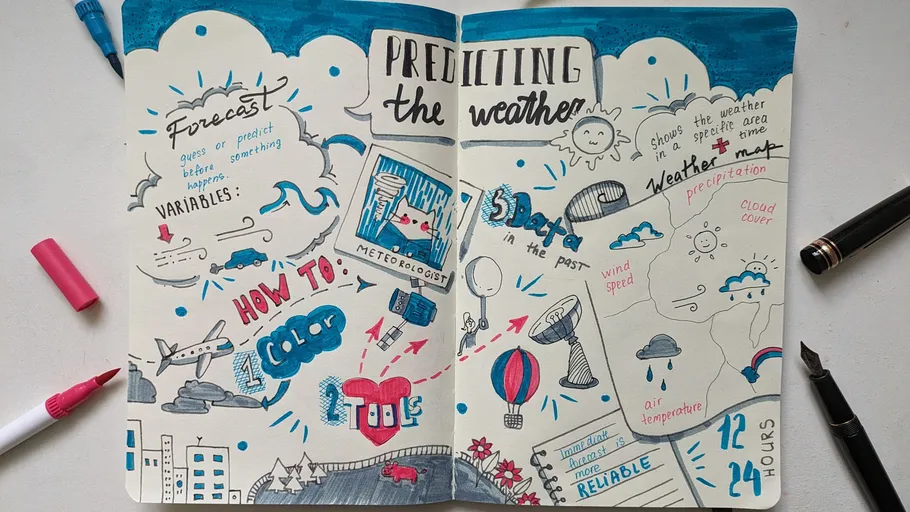 PREDICTING
the weather
Forecast
guess or predict
before something
happens.
VARIABLES:
METEOROLOGIST
HOW TO:
1 COLOR
2 TOOLS
3 Data
in the past
shows the weather
in a specific area
+ time
Weather map
precipitation
cloud
cover
wind
speed
air
temperature
Immediate
forecast is
more
RELIABLE
12
24
HOURS